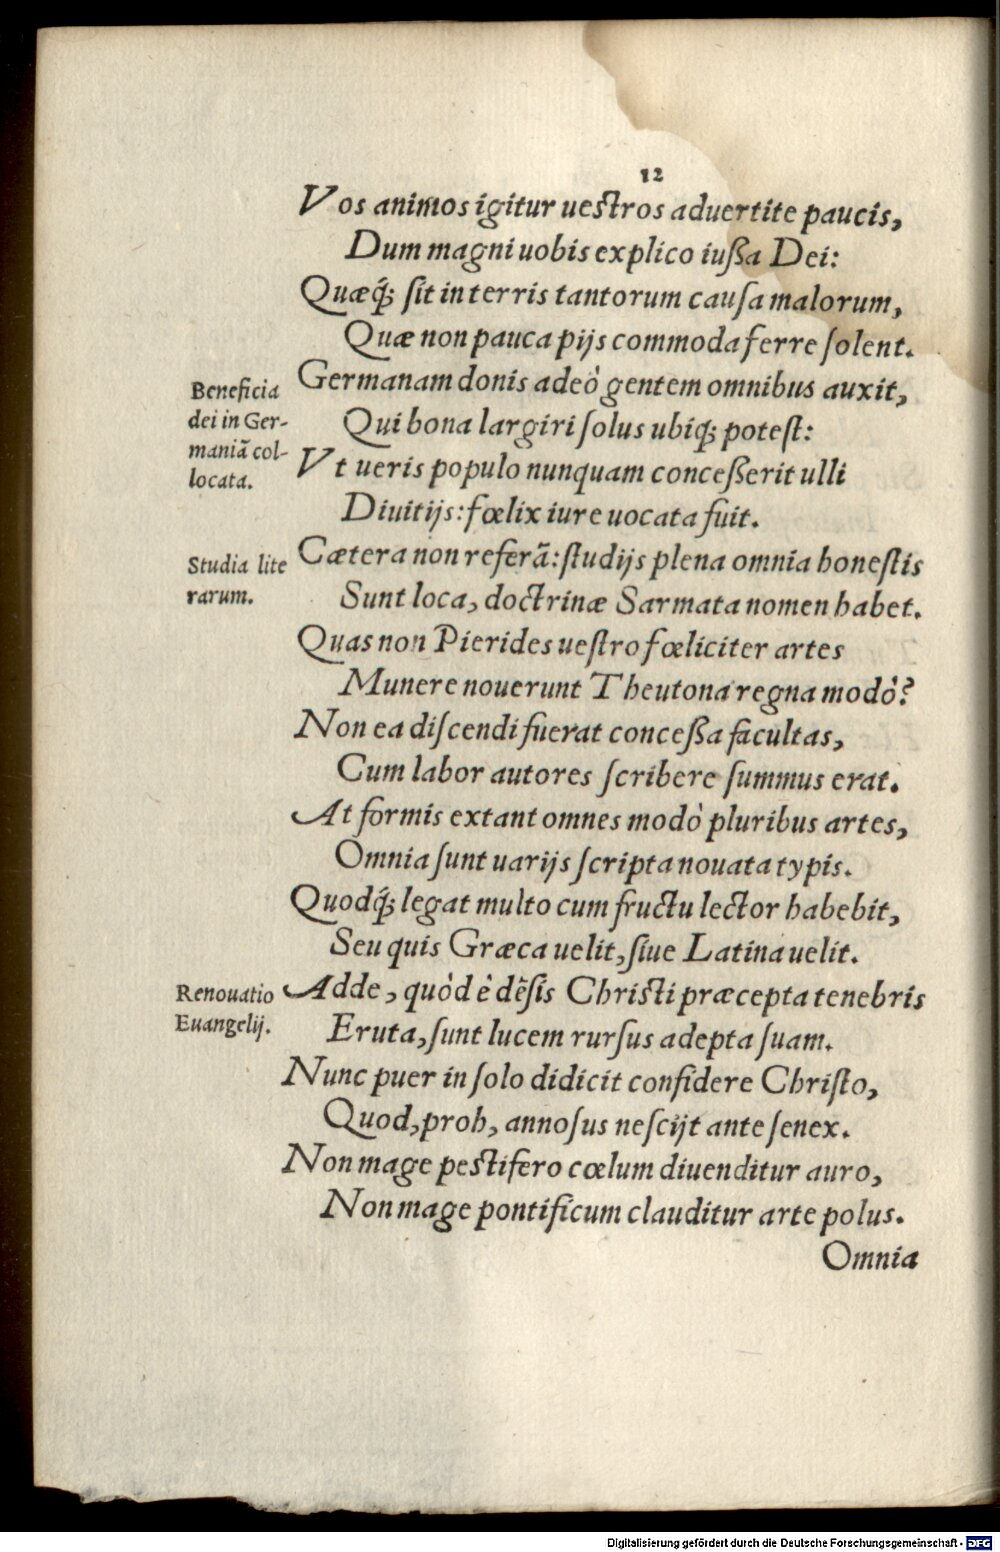 12
Vos animos igitur uestros aduertite paucis,
Dum magni uobis explico iußa Dei:
Quæq́; sit in terris tantorum causa malorum,
Quæ non pauca pijs commoda ferre solent.
Beneficia
dei in Ger-
maniã col-
locata.
Germanam donis adeò gentem omnibus auxit,
Qui bona largiri solus ubiq; potest:
Vt ueris populo nunquam conceßerit ulli
Diuitijs: fœlix iure uocata fuit.
Studia lite
rarum.
Cætera non referã: studijs plena omnia honestis
Sunt loca, doctrinæ Sarmata nomen habet.
Quas non Pierides uestro fœliciter artes
Munere nouerunt Theutona regna modò?
Non ea discendi fuerat conceßa facultas,
Cum labor autores scribere summus erat.
At formis extant omnes modò pluribus artes,
Omnia sunt uarijs scripta nouata typis.
Quodq́; legat multo cum fructu lector habebit,
Seu quis Græca uelit, siue Latina uelit.
Renouatio
Euangelij.
Adde, quòd è dẽsis Christi præcepta tenebris
Eruta, sunt lucem rursus adepta suam.
Nunc puer in solo didicit confidere Christo,
Quod, proh, annosus nescijt ante senex.
Non mage pestifero cœlum diuenditur auro,
Non mage pontificum clauditur arte polus.
Omnia
Digitalisierung gefördert durch die Deutsche Forschungsgemeinschaft - DFG